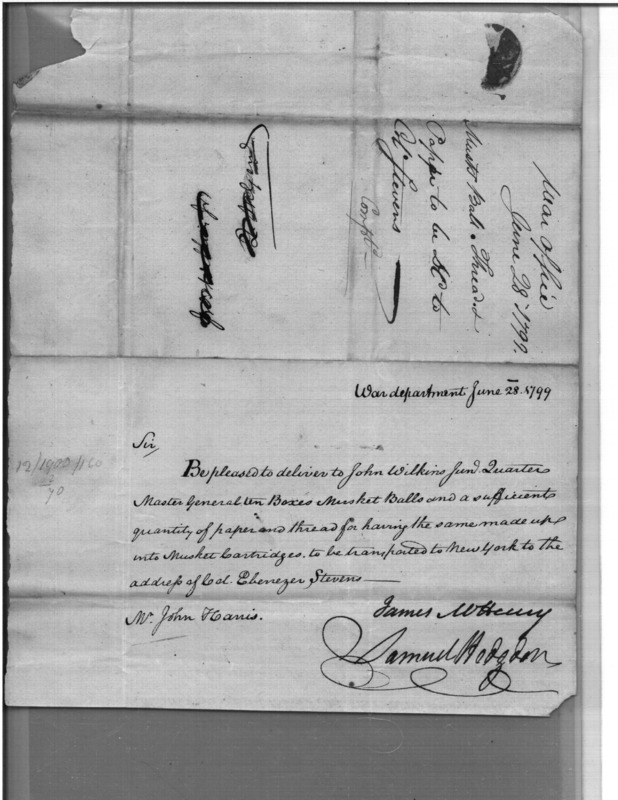 War office
June 28th 1799.
Muskt Balls Thread &
Paper to be Sd to
Col Stevens
Compld
War department June 28. 1799
Sir,
Be pleased to deliver to John Wilkins Junr. Quarter
Master General ten Boxes Musket Balls and a sufficient
quantity of paper and thread for having the same made up
into Musket Cartridges, to be transported to New York to the
address of Col. Ebenezer Stevens
Mr. John Harris.
James McHenry
Samuel Hodgdon
12/1920/160